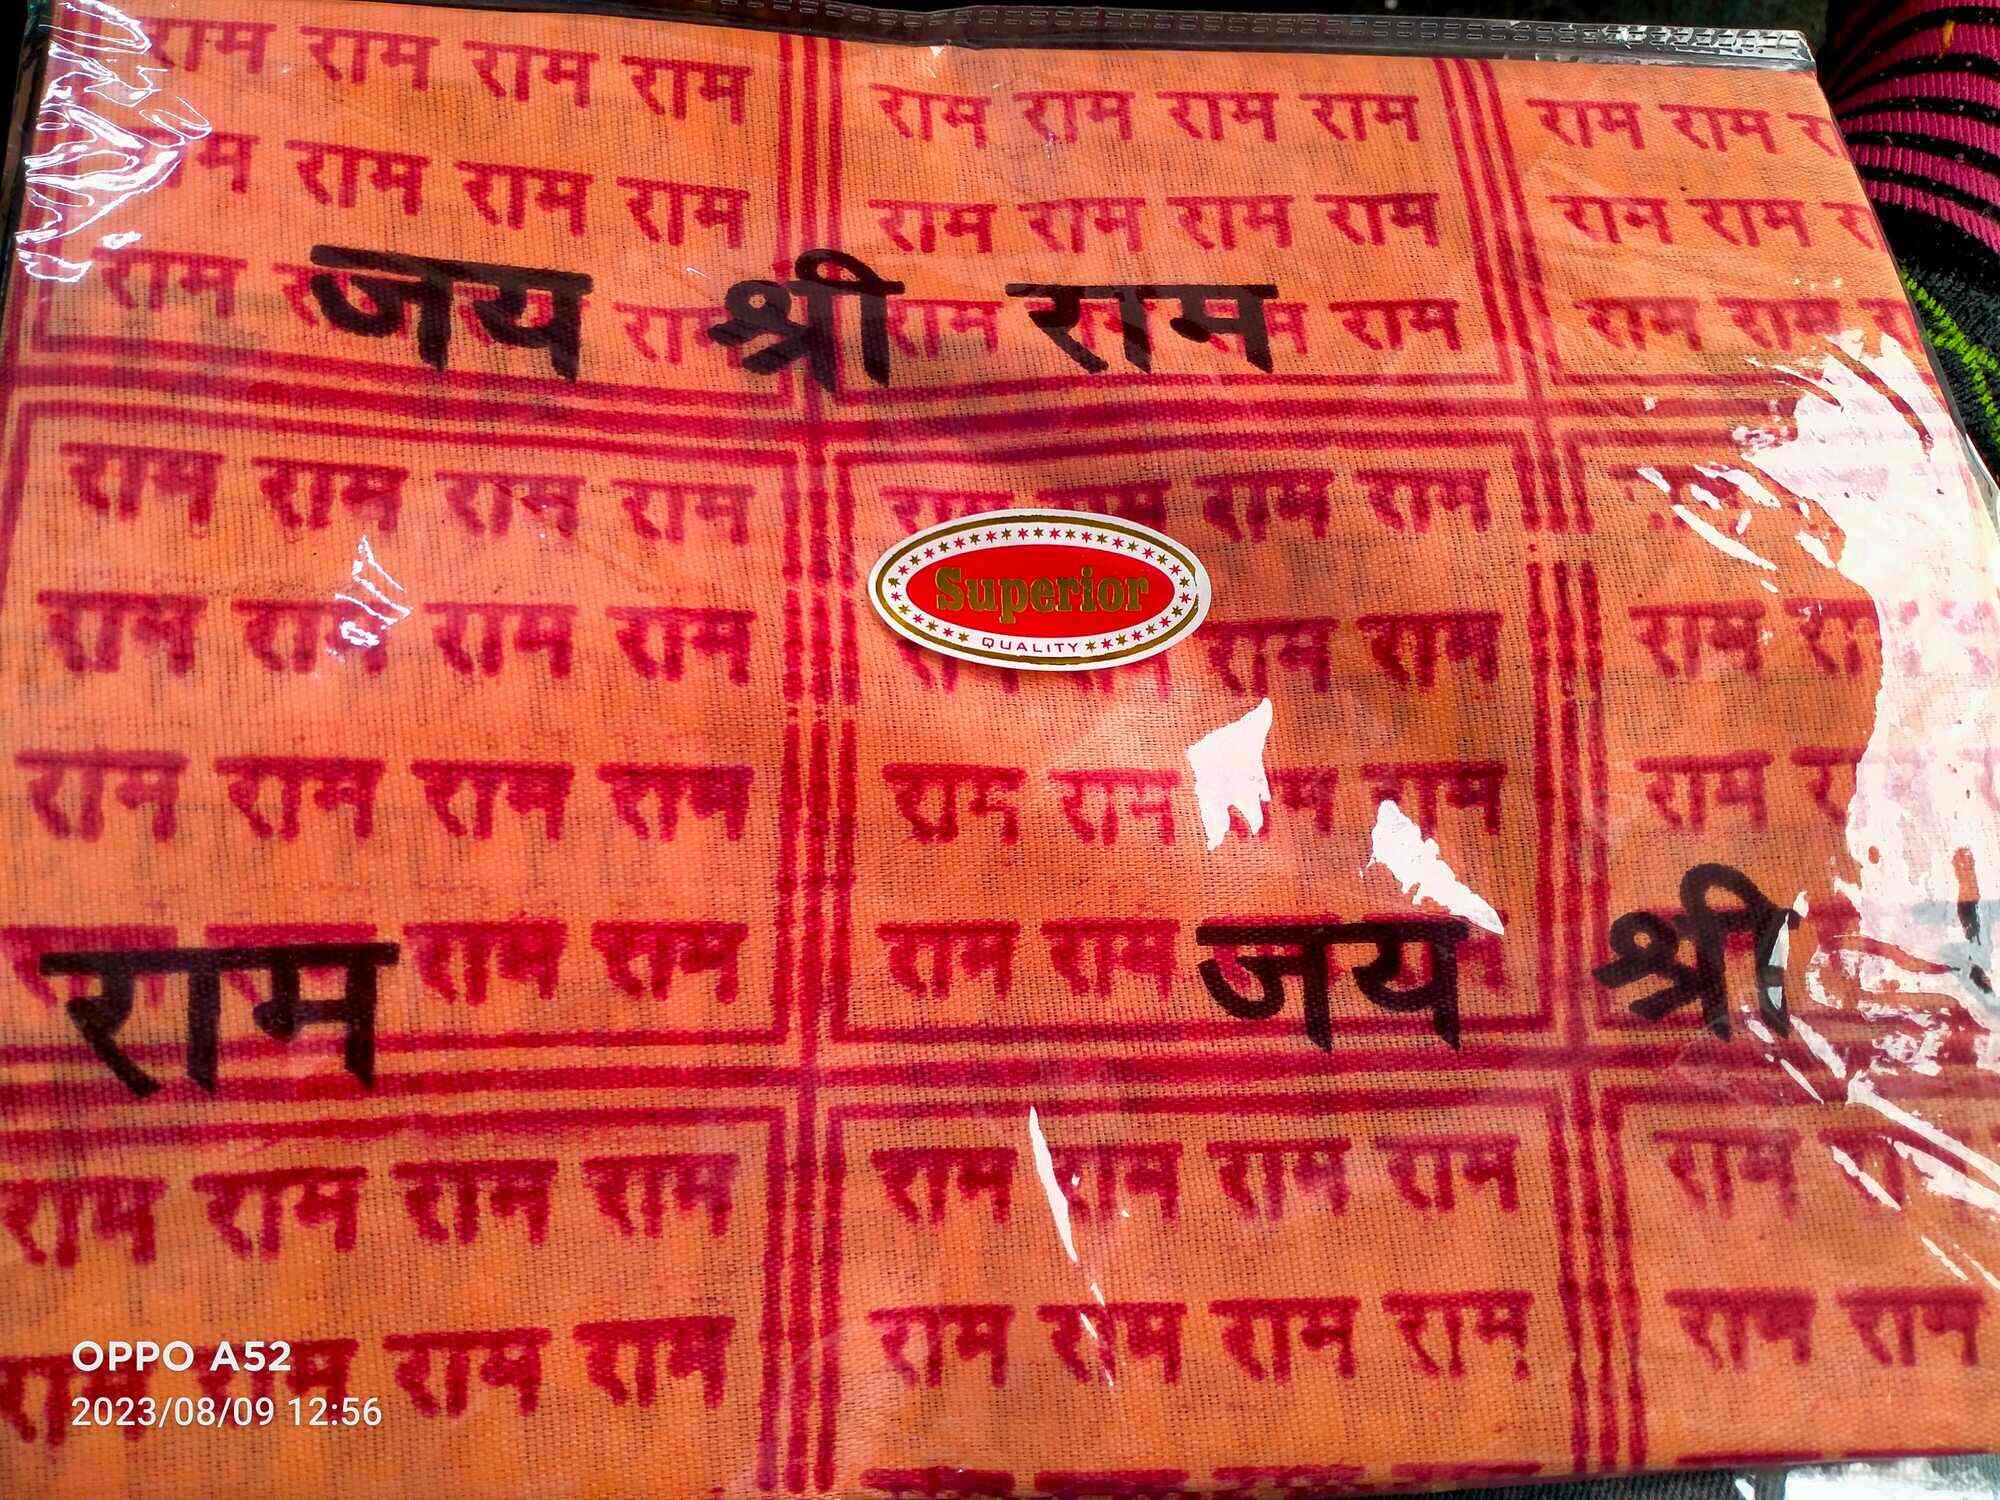 राम राम राम राम राम राम राम राम राम राम
राम राम राम राम राम राम राम राम राम
राम राम राम राम राम राम राम
जय श्री राम
राम राम राम राम राम राम
राम राम राम राम राम राम राम
Superior
QUALITY
राम राम राम राम राम राम राम राम
राम राम राम राम
राम जय श्री
राम राम राम राम राम राम राम राम राम
राम राम राम राम राम राम राम राम
OPPO A52
2023/08/09 12:56